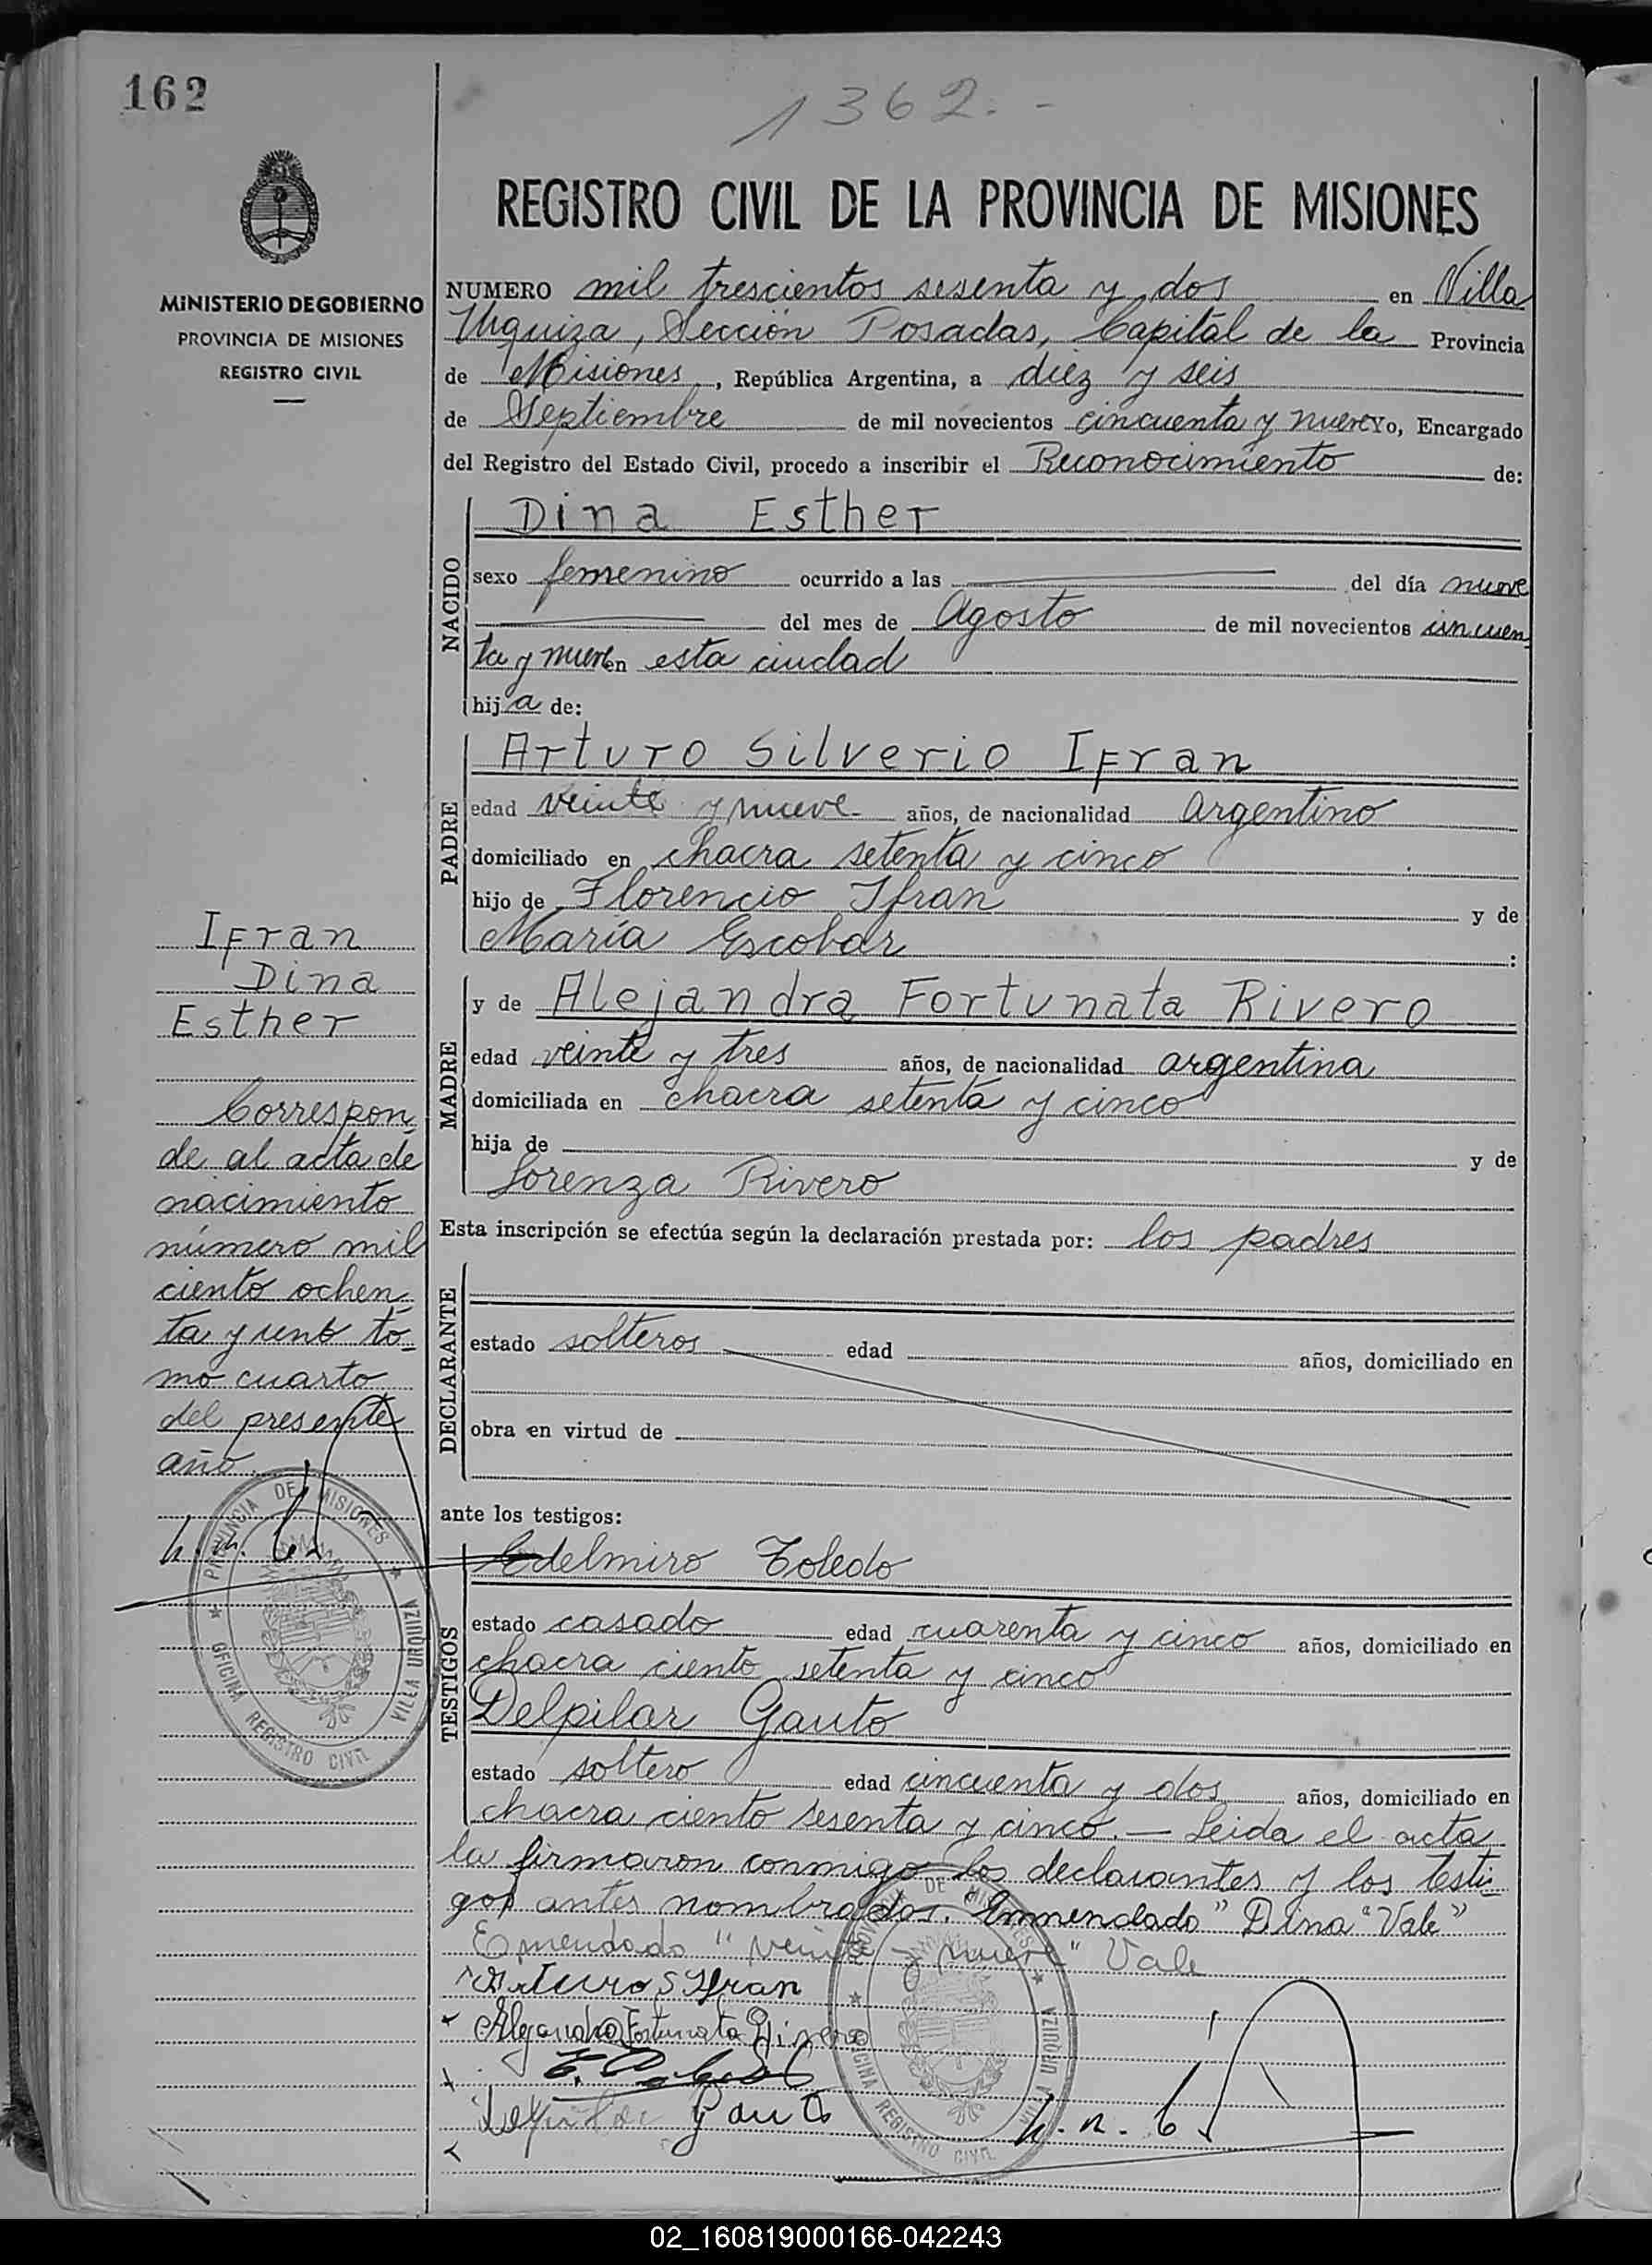 162
1362.-
REGISTRO CIVIL DE LA PROVINCIA DE MISIONES
MINISTERIO DE GOBIERNO
PROVINCIA DE MISIONES
REGISTRO CIVIL
NUMERO mil trescientos sesenta y dos en Villa
Urquiza, Sección Posadas, Capital de la Provincia
de Misiones, República Argentina, a diez y seis
de Septiembre de mil novecientos cincuenta y nueve Yo, Encargado
del Registro del Estado Civil, procedo a inscribir el Reconocimiento de:
NACIDO
Dina Esther
sexo femenino ocurrido a las del día nueve
del mes de Agosto de mil novecientos cincuen
ta y nueve en esta ciudad
hija de:
PADRE
Arturo Silverio Ifran
edad veinte y nueve años, de nacionalidad argentino
domiciliado en chacra setenta y cinco
hijo de Florencio Ifran y de
María Escobar :
MADRE
y de Alejandra Fortunata Rivero
edad veinte y tres años, de nacionalidad argentina
domiciliada en chacra setenta y cinco
hija de y de
Lorenza Rivero
Esta inscripción se efectúa según la declaración prestada por: los padres
DECLARANTE
estado solteros edad años, domiciliado en
obra en virtud de
ante los testigos:
TESTIGOS
Edelmiro Toledo
estado casado edad cuarenta y cinco años, domiciliado en
chacra ciento setenta y cinco
Delpilar Gauto
estado soltero edad cincuenta y dos años, domiciliado en
chacra ciento sesenta y cinco.- Leida el acta
la firmaron conmigo los declarantes y los testi-
gos antes nombrados. "Enmendado" Dina "Vale"
Emendado "veinte y nueve" Vale
Arturo S Ifran
Alejandra Fortunata Rivero
E. Toledo
Gauto
Ifran
Dina
Esther
Correspon-
de al acta de
nacimiento
número mil
ciento ochen-
ta y uno to-
mo cuarto
del presente
año
PROVINCIA DE MISIONES
OFICINA REGISTRO CIVIL
VILLA URQUIZA
PROVINCIA DE MISIONES
OFICINA REGISTRO CIVIL
VILLA URQUIZA
02_160819000166-042243